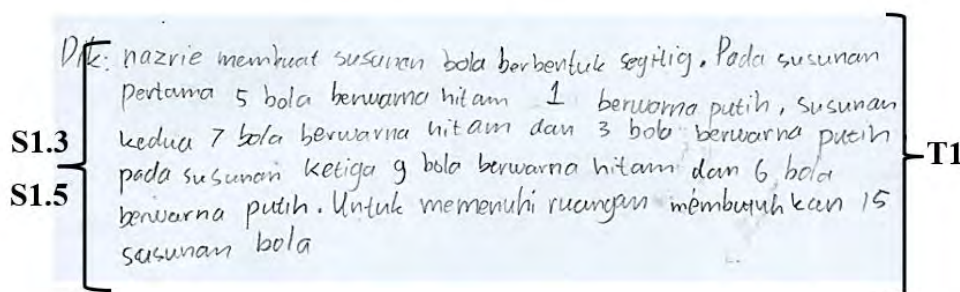 Dik: nazrie membuat susunan bola berbentuk segitig. Pada susunan
pertama 5 bola berwarna hitam 1 berwarna putih, susunan
kedua 7 bola berwarna hitam dan 3 bola berwarna putih
pada susunan ketiga 9 bola berwarna hitam dan 6 bola
berwarna putih. Untuk memenuhi ruangan membutuhkan 15
susunan bola
S1.3
S1.5
T1